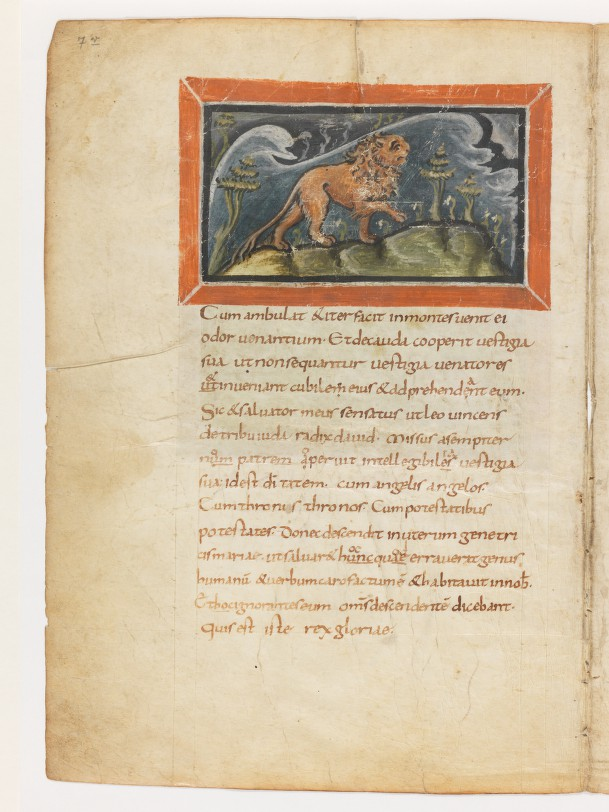 7v
Cum ambulat & iter facit in montes uenit ei
odor uenantium. Et de cauda cooperit uestigia
sua ut non sequantur uestigia uenatores
inueniant cubilem eius & adprehendant eum.
Sic & saluator meus sensatus ut leo uincens
de tribu iuda radix dauid. Missus a sempiter
patrem aperuit intellegibilia uestigia
sua id est di tatem. cum angelis angelos.
Cum thronis thronos. Cum potestatibus
potestates. Donec descendit in uterum genetri
cis mariae. ut saluaret hunc errauerat genus
humanū & uerbum caro factum ē & habitauit in nob.
Et hoc ignorantes eum om̄s descendentē dicebant.
Quis est iste rex gloriae.